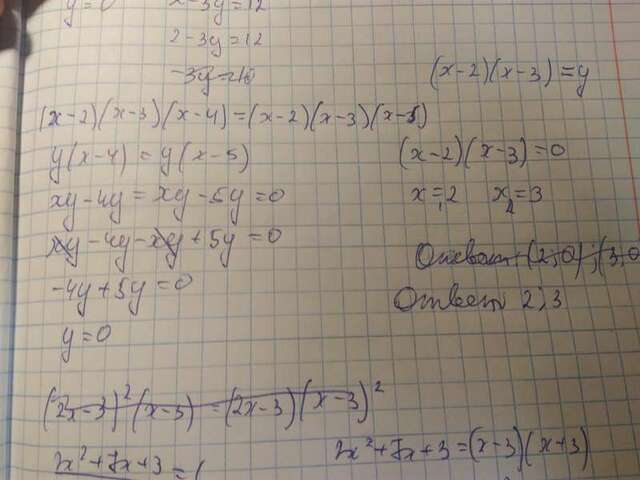 y=0
x-3y=12
2-3y=12
-3y=10
(x-2)(x-3)=y
(x-2)(x-3)(x-4)=(x-2)(x-3)(x-5)
y(x-4)=y(x-5)
xy-4y=xy-5y=0
xy-4y-xy+5y=0
-4y+5y=0
y=0
(x-2)(x-3)=0
x₁=2 x₂=3
Ответ: (2;0);(3;0
Ответ 2;3
(2x-3)²(x-3)=(2x-3)(x-3)²
2x²+7x+3=(
2x²+7x+3=(x-3)(x+3)